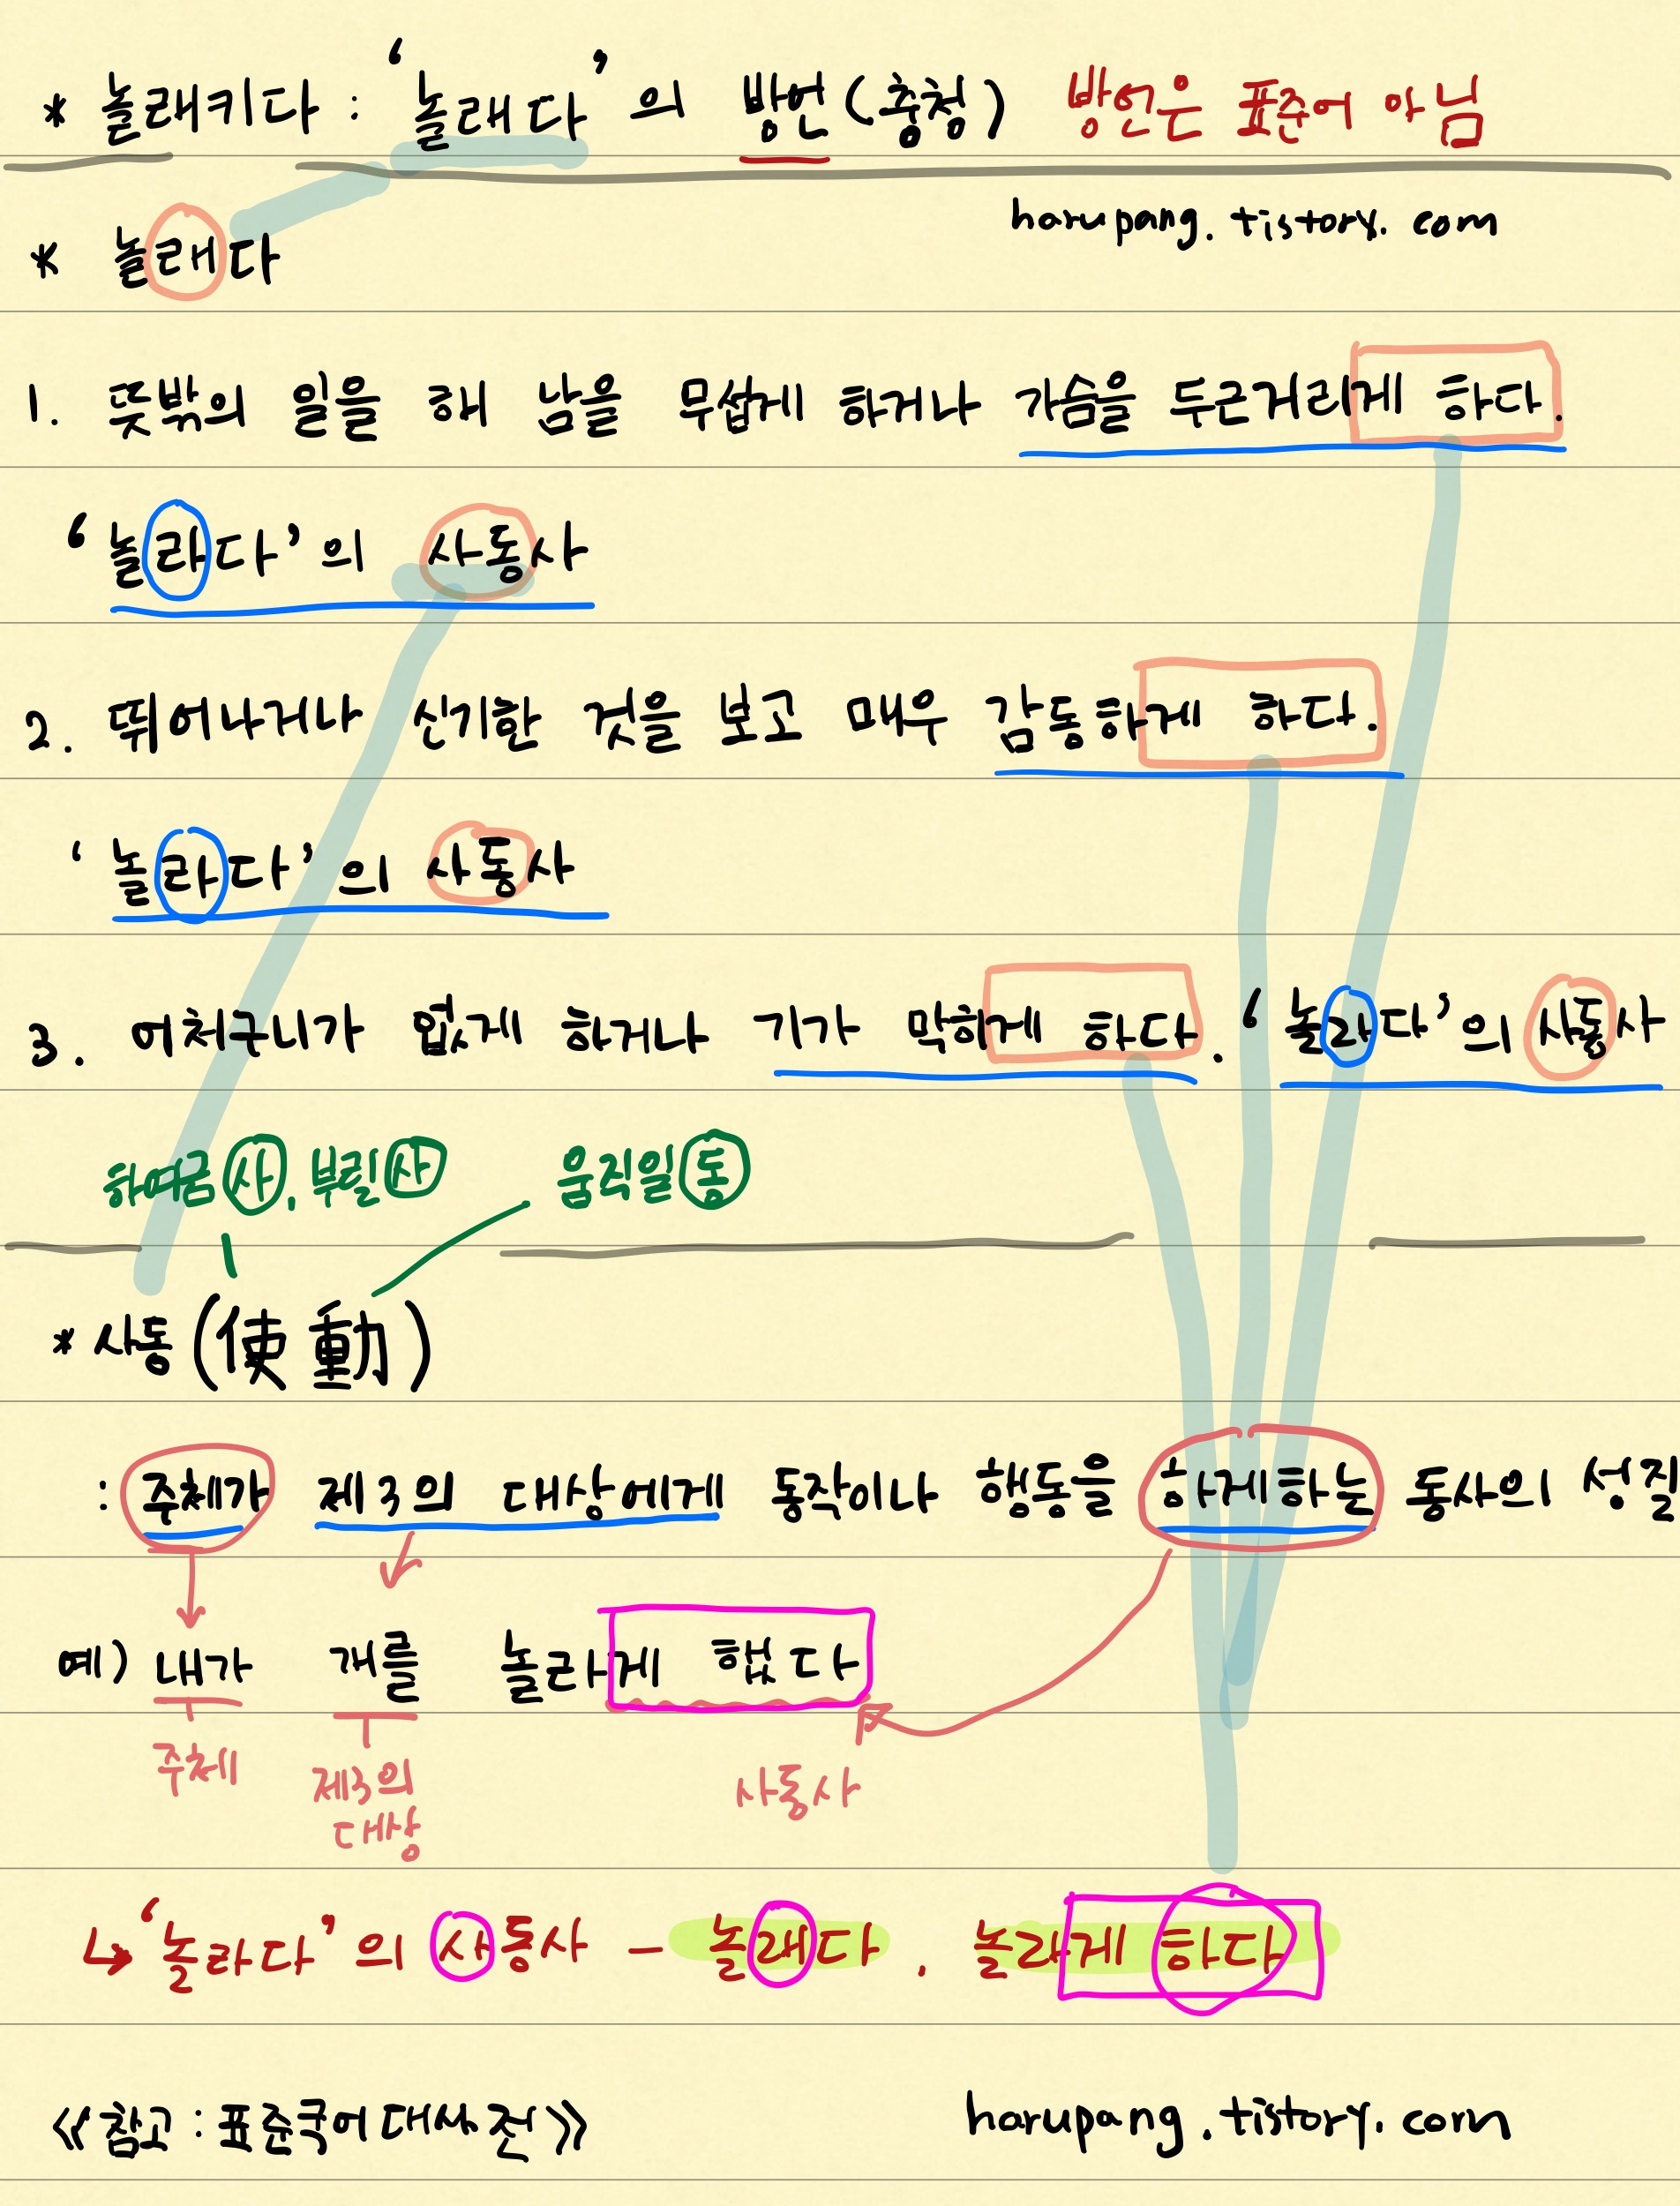 * 놀래키다 : '놀래다'의 방언(충청) 방언은 표준어 아님
harupang.tistory.com
* 놀래다
1. 뜻밖의 일을 해 남을 무섭게 하거나 가슴을 두근거리게 하다.
'놀라다'의 사동사
2. 뛰어나거나 신기한 것을 보고 매우 감동하게 하다.
'놀라다'의 사동사
3. 어처구니가 없게 하거나 기가 막히게 하다. '놀라다'의 사동사
하여금 사, 부릴 사 움직일 동
* 사동(使動)
: 주체가 제3의 대상에게 동작이나 행동을 하게하는 동사의 성질
예) 내가 걔를 놀라게 했다
주체 제3의 대상 사동사
↳ '놀라다'의 사동사 - 놀래다, 놀라게 하다
《참고 : 표준국어대사전》 harupang.tistory.com